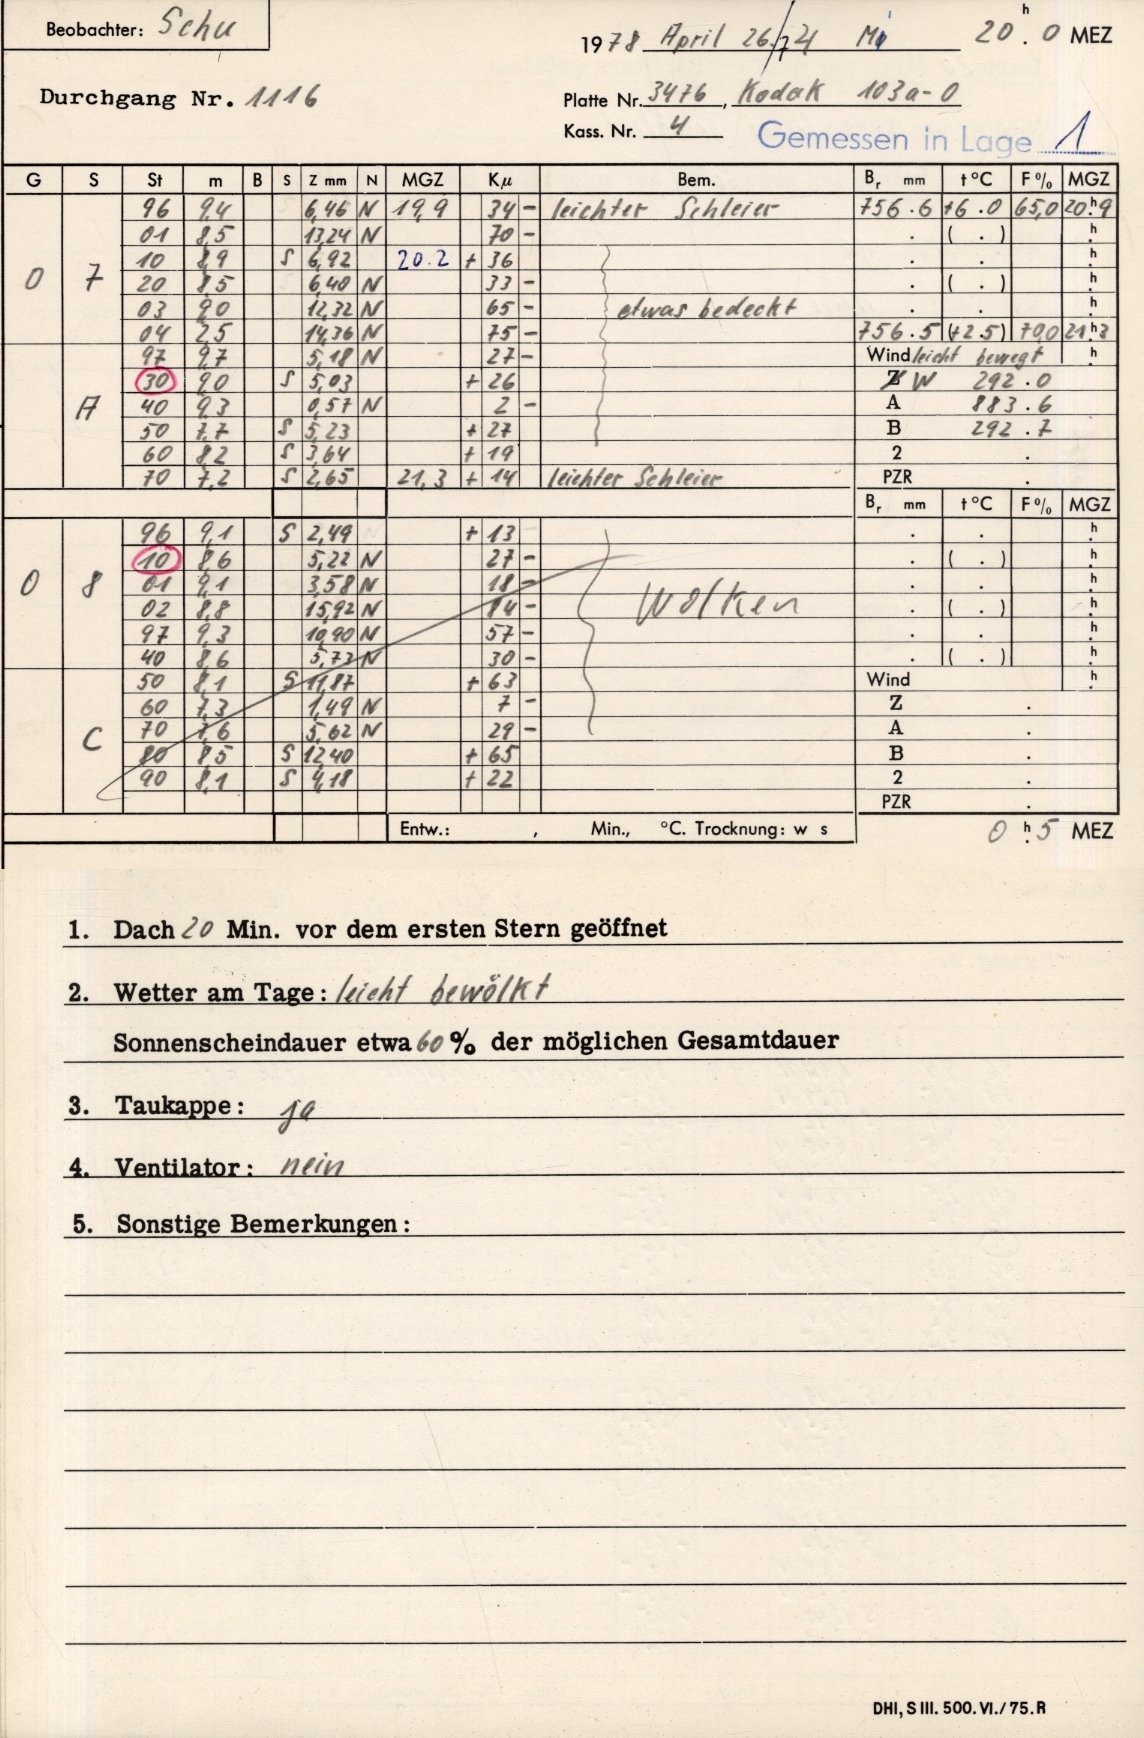 Beobachter: Schu
1978 April 26./27 Mi 20 h . 0 MEZ
Durchgang Nr. 1116
Platte Nr. 3476, Kodak 103a-O
Kass. Nr. 4
Gemessen in Lage 1
G S St m B S Z mm N MGZ Kμ Bem. Br mm t°C F% MGZ
96 9,4 6,46 N 19,9 34 - leichter Schleier 756.6 +6.0 65,0 20.h9
01 8,5 13,24 N 70 - . ( . ) h
10 8,9 S 6,92 20.2 + 36 . . h
0 7 20 8,5 6,40 N 33 - . ( . ) h
03 9,0 12,32 N 65 - etwas bedeckt . . h
04 2,5 14,36 N 75 - 756.5 (+2.5) 70,0 21.h2
97 9,7 5,18 N 27 - Wind leicht bewegt h
30 9,0 S 5,03 + 26 Z W 292.0
A 40 9,3 0,57 N 2 - A 883.6
50 7,7 S 5,23 + 27 B 292.7
60 8,2 S 3,64 + 19 2 .
70 7,2 S 2,65 21,3 + 14 leichter Schleier PZR .
Br mm t°C F% MGZ
96 9,1 S 2,49 + 13 . . h
10 8,6 5,22 N 27 - . ( . ) h
0 8 01 9,1 3,58 N 18 - . . h
02 8,8 15,92 N 84 - Wolken . ( . ) h
97 9,3 10,90 N 57 - . . h
40 8,6 5,73 N 30 - . ( . ) h
50 8,1 S 11,87 + 63 Wind h
60 7,3 1,49 N 7 - Z .
C 70 7,6 5,62 N 29 - A .
80 8,5 S 12,40 + 65 B .
90 8,1 S 4,18 + 22 2 .
PZR .
Entw.: , Min., °C. Trocknung: w s 0 h . 5 MEZ
1. Dach 20 Min. vor dem ersten Stern geöffnet
2. Wetter am Tage: leicht bewölkt
Sonnenscheindauer etwa 60 % der möglichen Gesamtdauer
3. Taukappe: ja
4. Ventilator: nein
5. Sonstige Bemerkungen:
DHI, S III. 500. VI./75. R